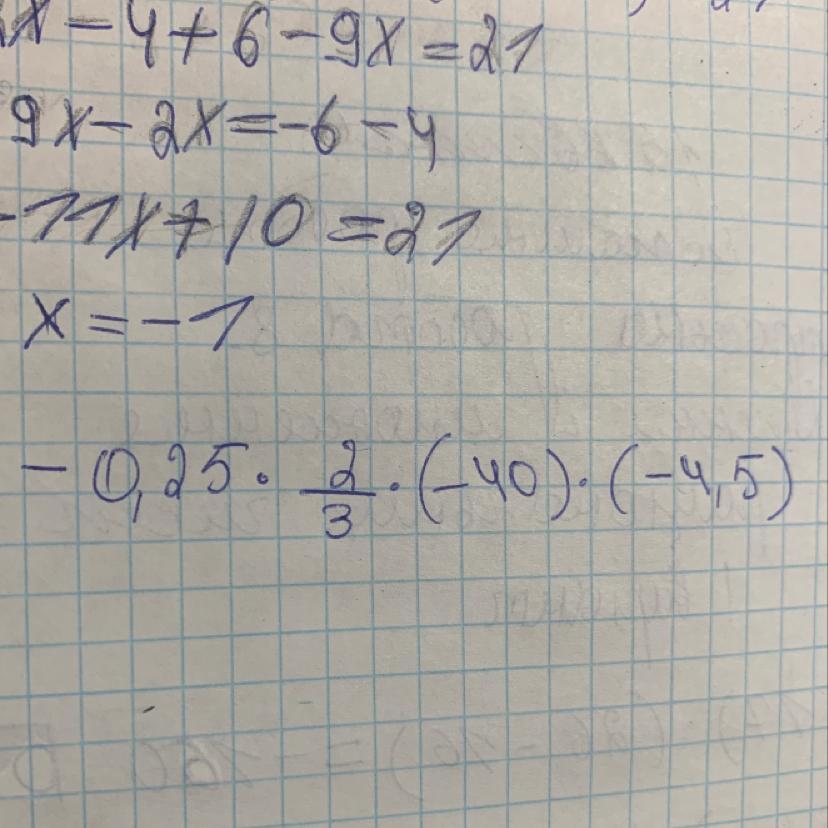 x - 4 + 6 - 9x = 21
9x - 2x = -6 - 4
-11x + 10 = 21
x = -1
- 0,25 · 2/3 · (-40) · (-4,5)